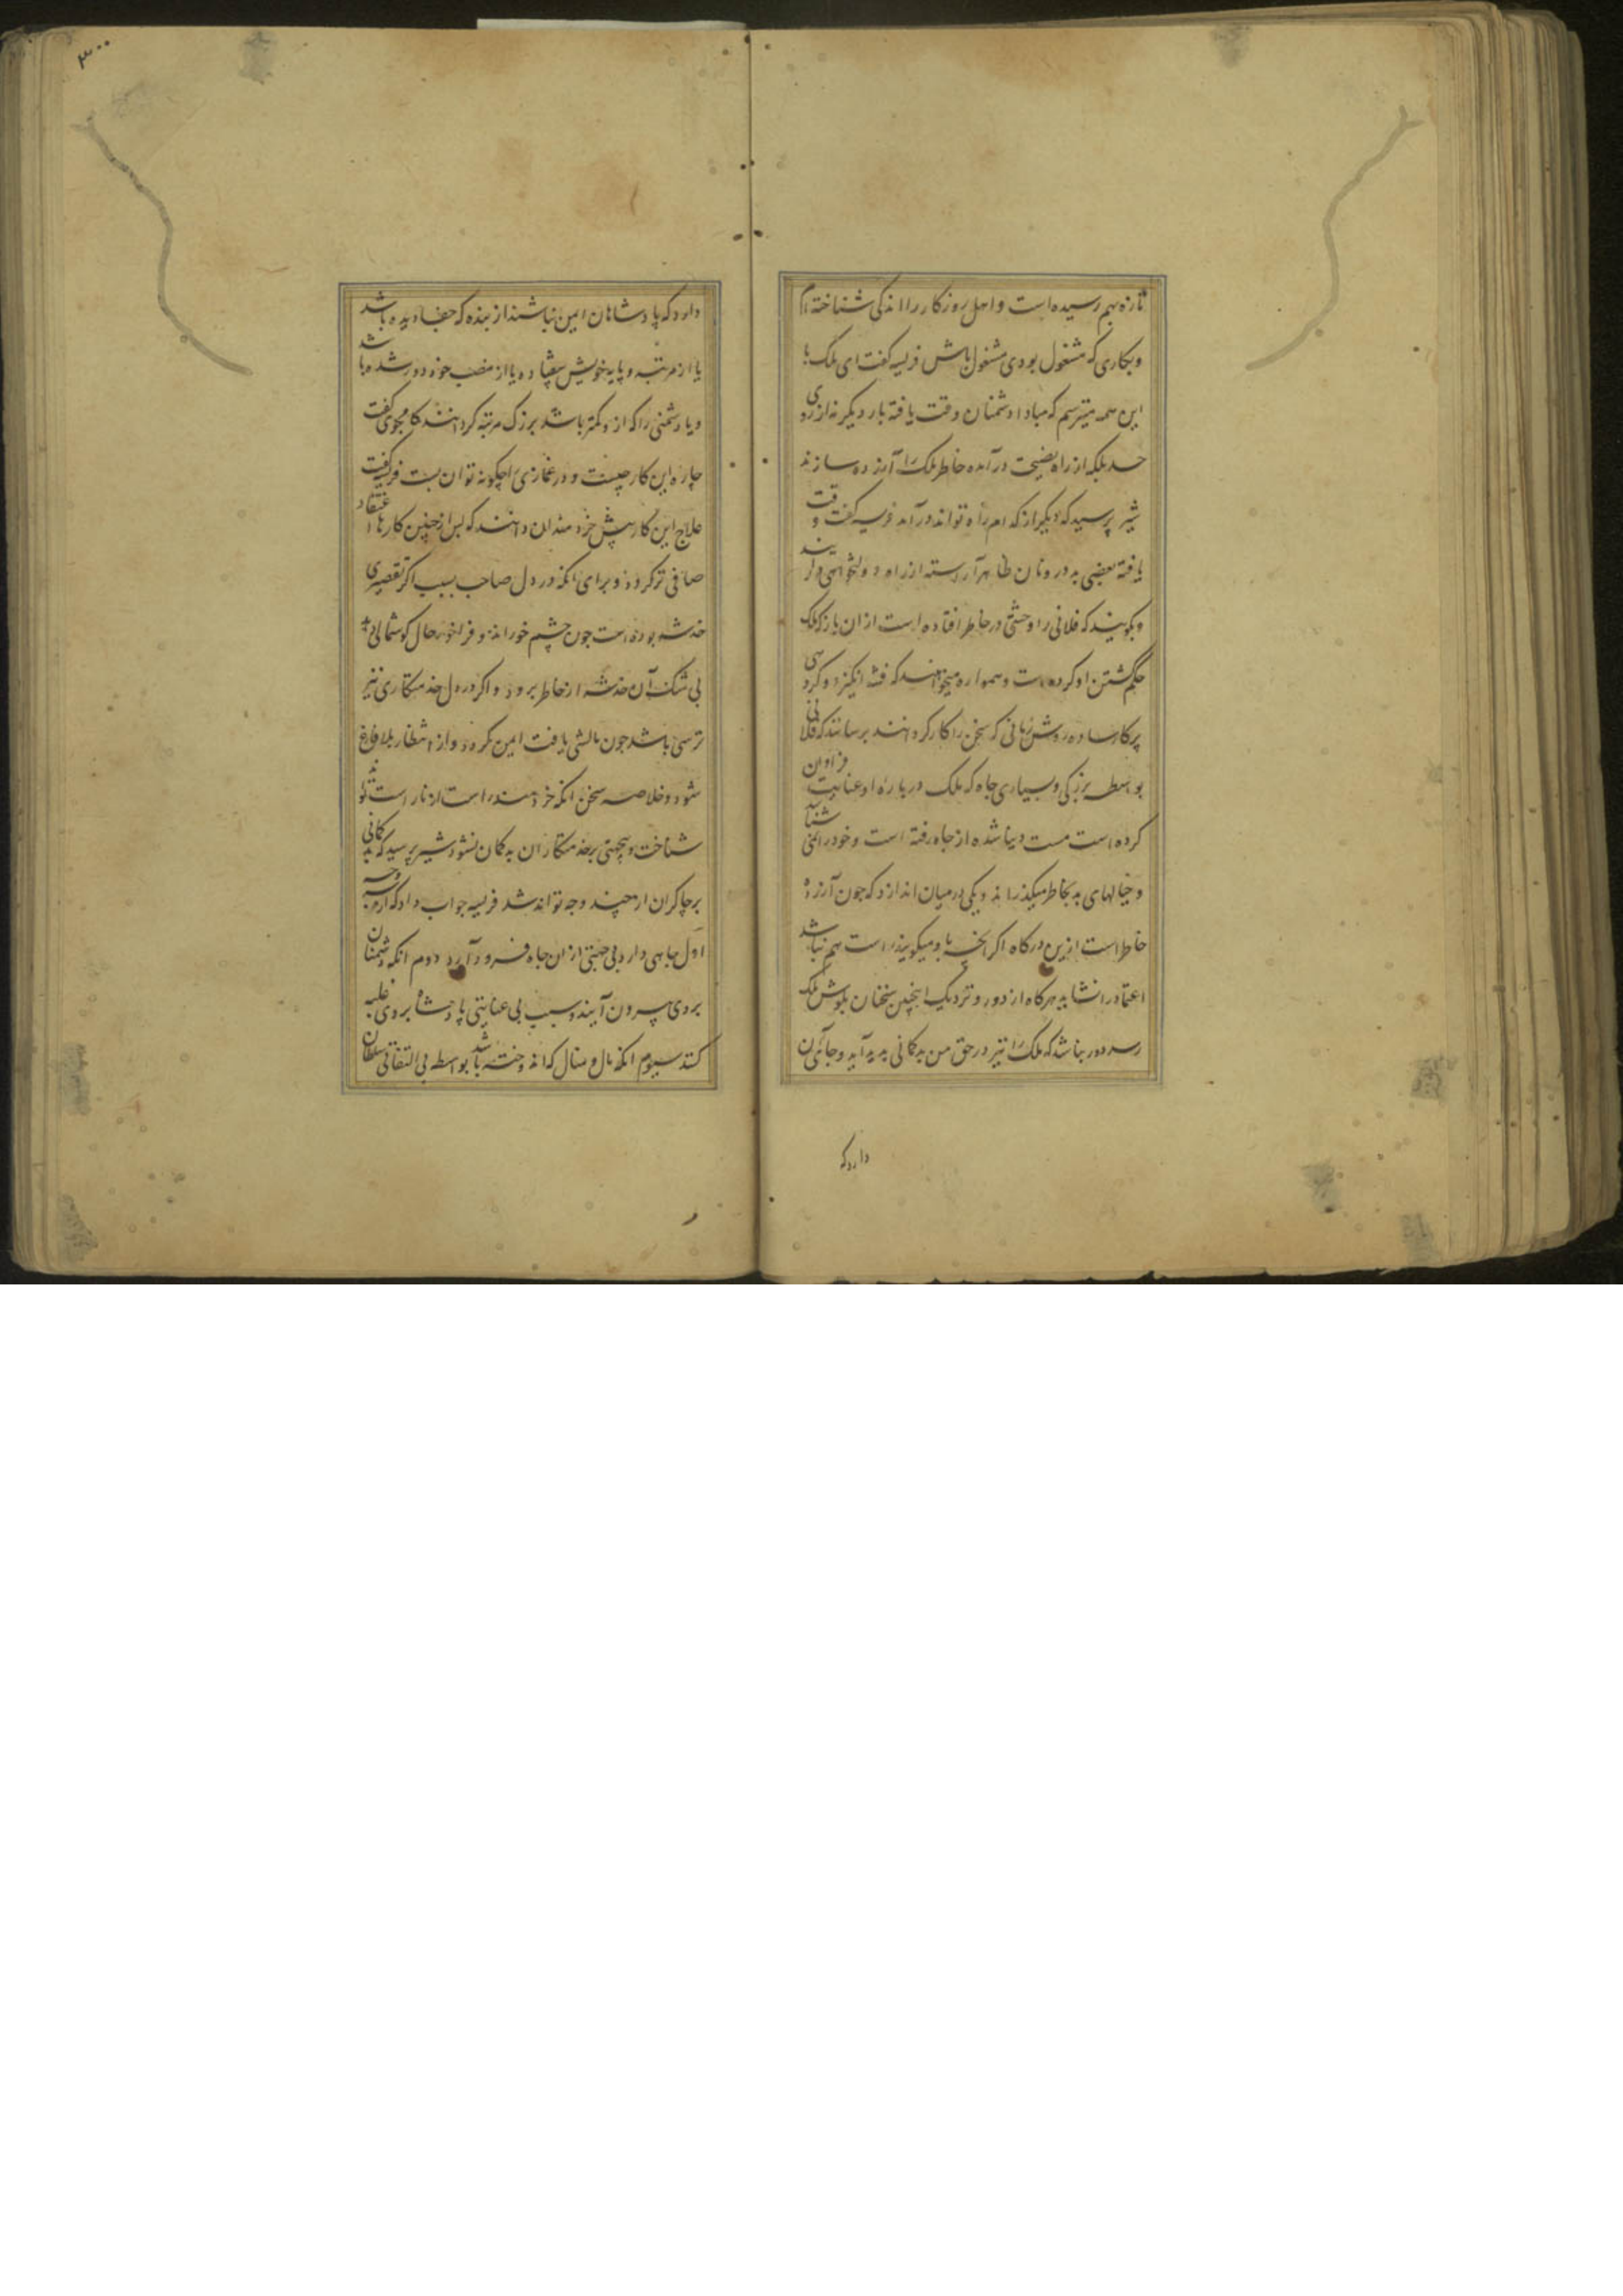 تازه بهم رسیده است و اهل روزکار را اندکی شناخته ام
و بکاری که مشغول بودی مشغول باش فریسه کفت ای ملک با
این همه میترسم که مبادا دشمنان وقت یافته بار دیکر نه از روی
حسد بلکه از راه نصیحت درآمده خاطر ملک را آزرده سازند
شیر پرسید که دیکر از کدام راه تواند درآمد فریسه کفت وقت
یافته بعضی بد درونان ظاهر آراسته از راه دولتخواهی درآیند
و بکویند که فلانی را وحشتی در خاطر افتاده است از ان باز که ملک
حکم کشتن او کرده است و همواره میخواهند که فتنه انکیزد و کروهی
پرکار ساده روش زبانی که سخن را کار کردانند برسانند که فلانی
بواسطه بزرکی و بسیاری جاه که ملک درباره او عنایت فراوان
کرده است مست دنیا شده از جاه رفته است و خود را نمی شناسد
و خیالهای بد بخاطر میکذراند و یکی در میان اندازد که چون آزرده
خاطر است ازین درکاه اکر آنچه باو میکویند راست هم نباشد
اعتماد را نشاید هرکاه از دور و نزدیک اینچنین سخنان بکوش ملک
رسد دور نباشد که ملک را نیز در حق من بدکمانی پدید آید و جای آن
دارد که
۳۰۰
دارد که پادشاهان ایمن نباشند از بنده که جفا دیده باشد
یا از مرتبه و پایه خویش بیفتاده یا از منصب خود دور شده باشد
و یا دشمنی را که ازو کمتر باشد بزرک مرتبه کردانند کامجوی کفت
چاره این کار چیست و در غمازی را چکونه توان بست فریسه کفت
علاج این کار پیش خردمندان دانند که پس از چنین کارها اعتقاد
صافی تر کردد و برای آنکه در دل صاحب بسبب اکر تقصیری
خدشه بوده است چون چشم خوراند و فراخور حال کوشمالی داد
بی شک آن خدشه از خاطر برود و اکر در دل خدمتکاری نیز
ترسی باشد چون مالشی یافت ایمن کردد و از انتظار بلا فارغ
شود و خلاصه سخن آنکه خردمند راست از ناراست تواند
شناخت و بهیچ بر خدمتکاران بدکمان نشود شیر پرسید که بدکمانی
بر چاکران از چند وجه تواند شد فریسه جواب داد که از سه وجه
اول جاهی دارد بی جهتی از ان جاه فرود آرد دوم آنکه دشمنان
بروی بیرون آیند و بسبب بی عنایتی پادشاه بروی غلبه
کنند سیوم آنکه مال و منال که اندوخته باشد بواسطه بی التفاتی سلطان